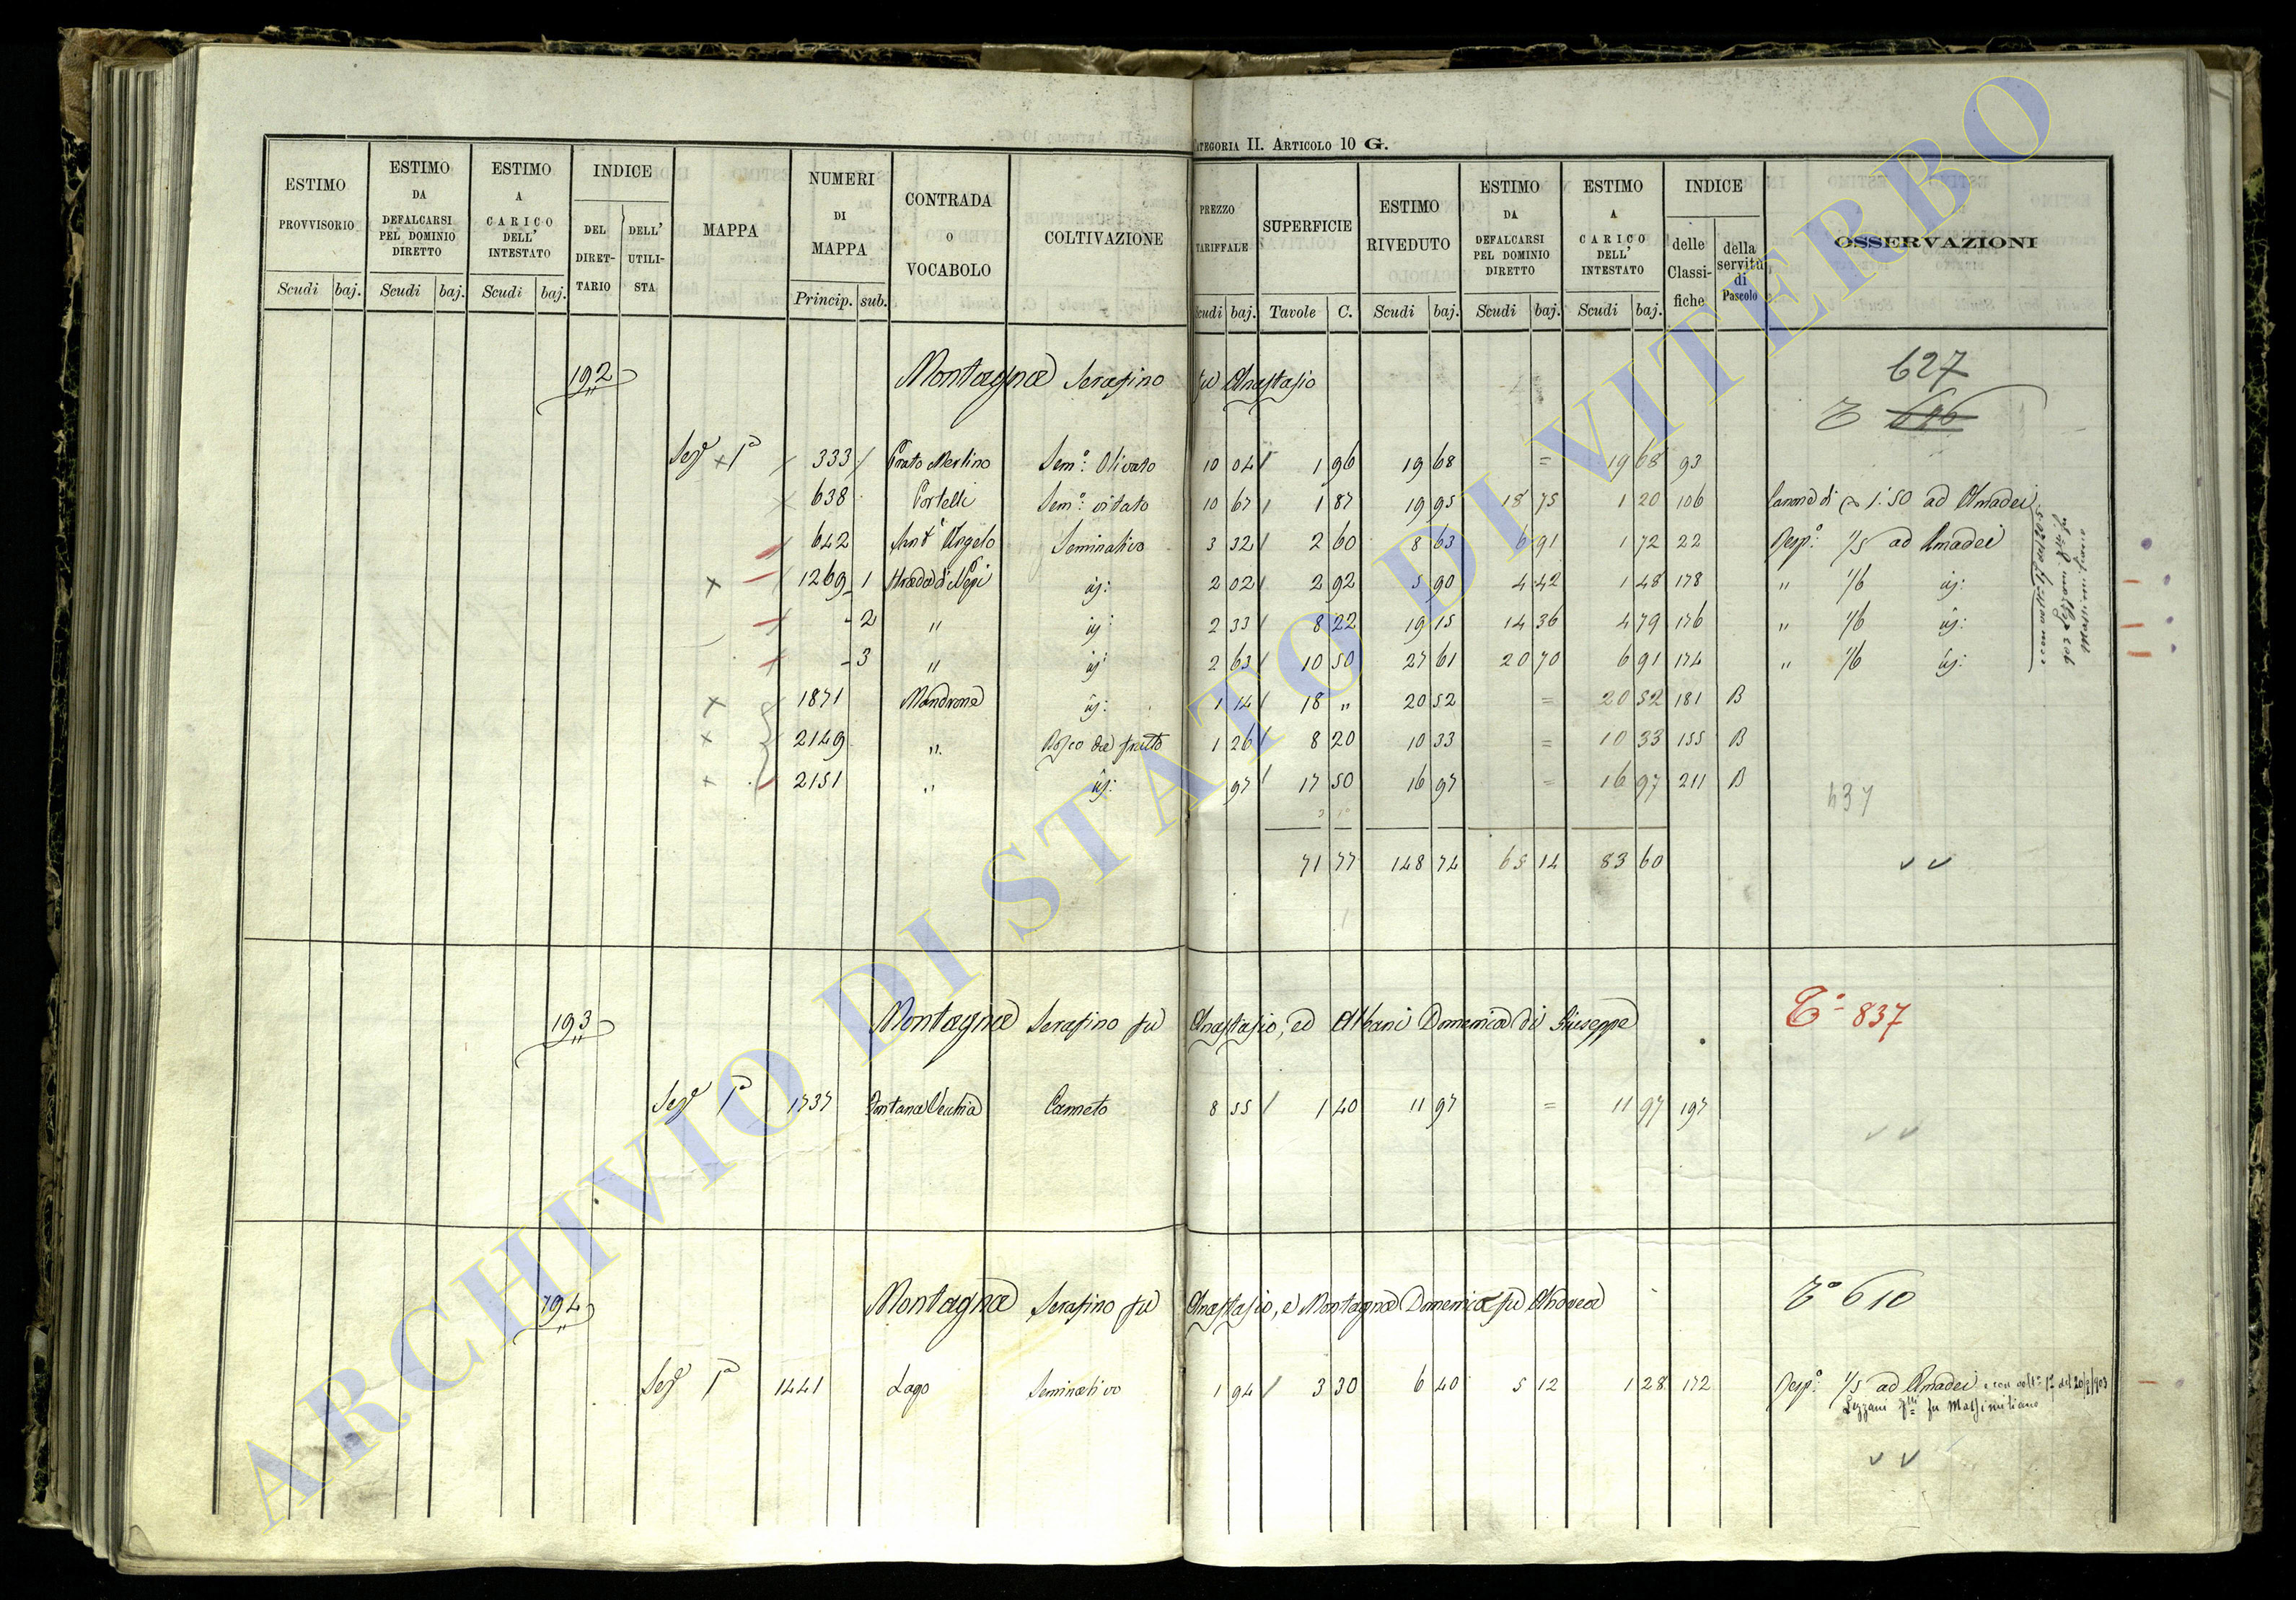 CATEGORIA II. ARTICOLO 10 G.
ESTIMO PROVVISORIO Scudi baj. | ESTIMO DA DEFALCARSI PEL DOMINIO DIRETTO Scudi baj. | ESTIMO A CARICO DELL' INTESTATO Scudi baj. | INDICE DEL DIRETTARIO | DELL' UTILISTA | MAPPA | NUMERI DI MAPPA Princip. sub. | CONTRADA O VOCABOLO | COLTIVAZIONE | PREZZO TARIFFALE Scudi baj. | SUPERFICIE Tavole C. | ESTIMO RIVEDUTO Scudi baj. | ESTIMO DA DEFALCARSI PEL DOMINIO DIRETTO Scudi baj. | ESTIMO A CARICO DELL' INTESTATO Scudi baj. | INDICE delle Classifiche | della servitù di Pascolo | OSSERVAZIONI
192 Montagna Serafino fu Anastasio 627
646
Sez.e 1a 333 Prato Merlino Sem.o Olivato 10 04 1 96 19 68 = 19 68 93
638 Portelli Sem.o vitato 10 67 1 87 19 95 18 75 1 20 106 Canone di 1:50 ad Amadei
642 Sant'Angelo Seminativo 3 32 2 60 8 63 6 91 1 72 22 Resp.o 1/5 ad Amadei
1269 1 Strada di Nepi id: 2 02 2 92 5 90 4 42 1 48 178 " 1/6 id:
- 2 " id: 2 33 8 22 19 15 14 36 4 79 176 " 1/6 id:
- 3 " id: 2 63 10 50 27 61 20 70 6 91 174 " 1/6 id:
1871 Mandrone id: 1 14 18 " 20 52 = 20 52 181 B
2149 " Bosco da frutto 1 26 8 20 10 33 = 10 33 155 B
2151 " id: 97 17 50 16 97 = 16 97 211 B
437
71 77 148 74 65 14 83 60
193 Montagna Serafino fu Anastasio, ed Albani Domenica di Giuseppe To 837
Sez.e 1a 1737 Fontana Vecchia Canneto 8 55 1 40 11 97 = 11 97 197
194 Montagna Serafino fu Anastasio, e Montagna Domenica fu Andrea To 610
Sez.e 1a 1441 Lago Seminativo 1 94 3 30 6 40 5 12 1 28 172 Resp.o 1/5 ad Amadei e con volt.
Lezzani f.lli fu Massimiliano
ARCHIVIO DI STATO DI VITERBO